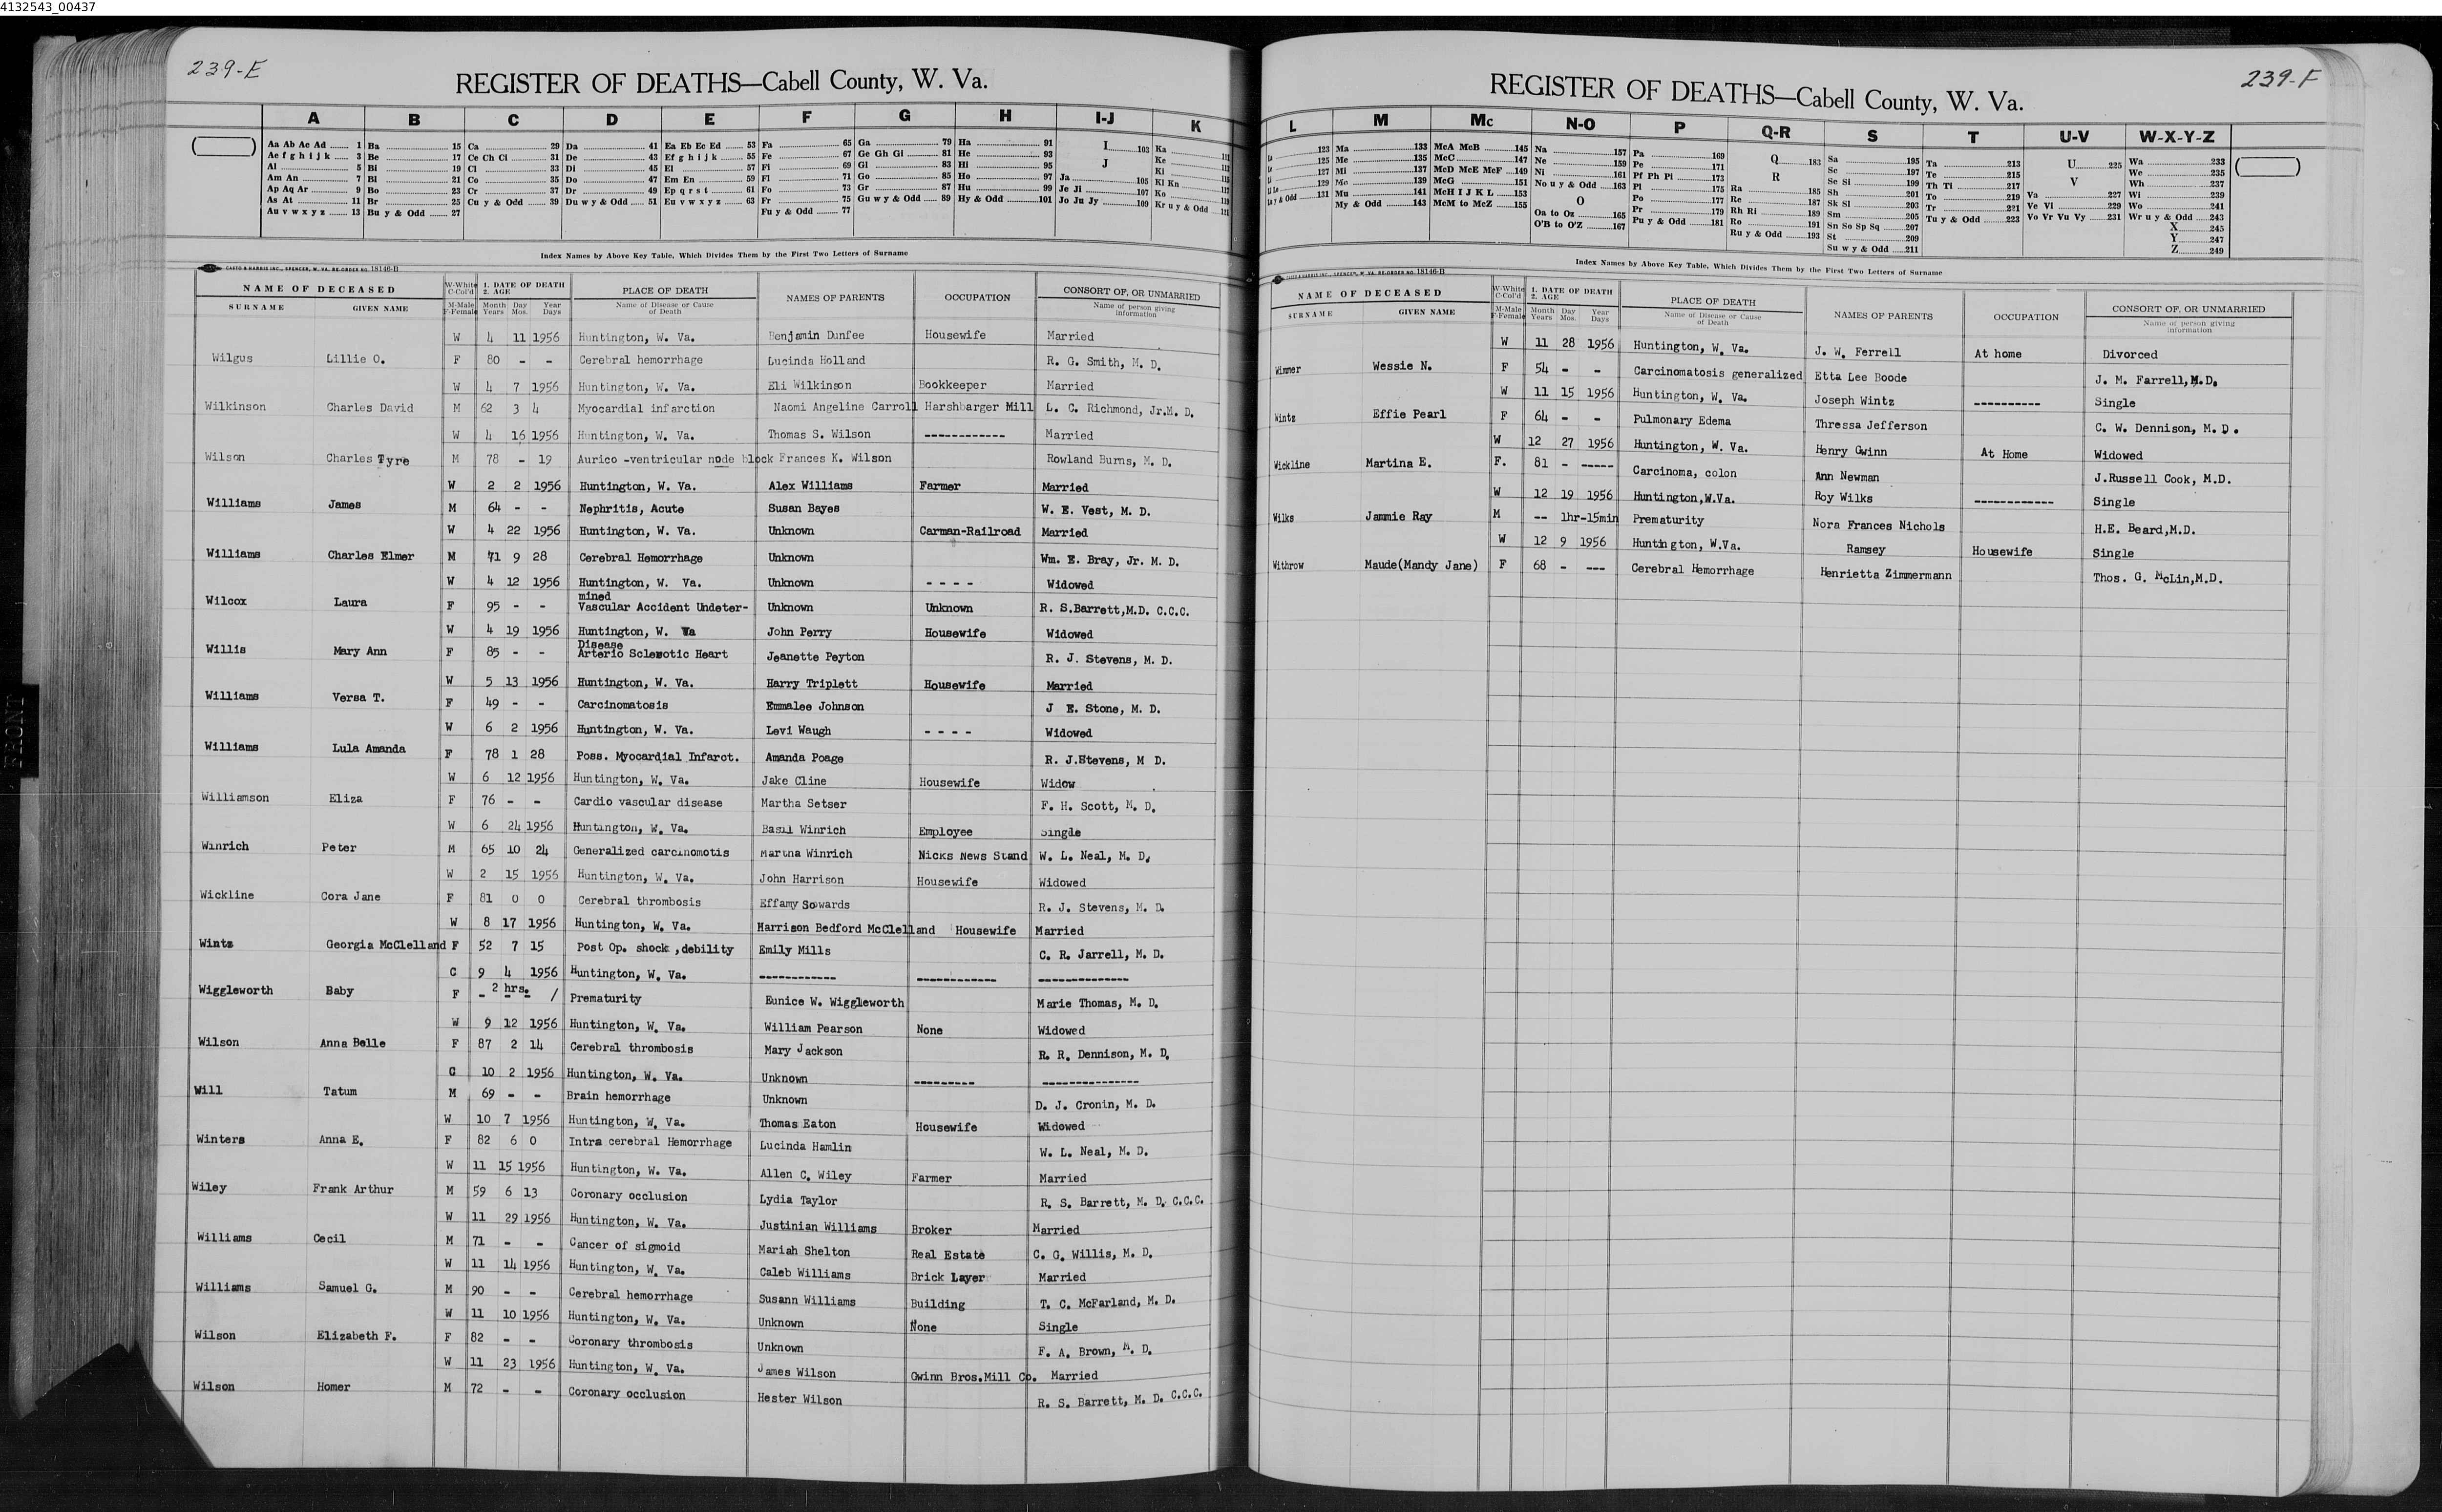 4132543_00437
239-E
REGISTER OF DEATHS—Cabell County, W. Va.
A B C D E F G H I-J K
Aa Ab Ac Ad 1 Ba 15 Ca 29 Da 41 Ea Eb Ec Ed 53 Fa 65 Ga 79 Ha 91 I 103 Ka
Ae f g h i j k 3 Be 17 Ce Ch Ci 31 De 43 Ef g h i j k 55 Fe 67 Ge Gh Gi 81 He 93 J Ke
Al 5 Bi 19 Cl 33 Di 45 El 57 Fi 69 Gl 83 Hi 95 Ja 105 Ki
Am An 7 Bl 21 Co 35 Do 47 Em En 59 Fl 71 Go 85 Ho 97 Je Ji 107 Kl Kn
Ap Aq Ar 9 Bo 23 Cr 37 Dr 49 Ep q r s t 61 Fo 73 Gr 87 Hu 99 Jo Ju Jy 109 Ko
As At 11 Br 25 Cu y & Odd 39 Du w y & Odd 51 Eu v w x y z 63 Fr 75 Gu w y & Odd 89 Hy & Odd 101 Kr u y & Odd
Au v w x y z 13 Bu y & Odd 27 Fu y & Odd 77
Index Names by Above Key Table, Which Divides Them by the First Two Letters of Surname
CASTO & HARRIS INC., SPENCER, W. VA. RE-ORDER NO. 18146-B
NAME OF DECEASED W-White C-Col'd 1. DATE OF DEATH 2. AGE PLACE OF DEATH NAMES OF PARENTS OCCUPATION CONSORT OF, OR UNMARRIED
SURNAME GIVEN NAME M-Male F-Female Month Years Day Mos. Year Days Name of Disease or Cause of Death Name of person giving information
W 4 11 1956 Huntington, W. Va. Benjamin Dunfee Housewife Married
Wilgus Lillie O. F 80 - - Cerebral hemorrhage Lucinda Holland R. G. Smith, M. D.
W 4 7 1956 Huntington, W. Va. Eli Wilkinson Bookkeeper Married
Wilkinson Charles David M 62 3 4 Myocardial infarction Naomi Angeline Carroll Harshbarger Mill L. C. Richmond, Jr.M. D.
W 4 16 1956 Huntington, W. Va. Thomas S. Wilson ------------ Married
Wilson Charles Tyre M 78 - 19 Aurico -ventricular node block Frances K. Wilson Rowland Burns, M. D.
W 2 2 1956 Huntington, W. Va. Alex Williams Farmer Married
Williams James M 64 - - Nephritis, Acute Susan Bayes W. E. Vest, M. D.
W 4 22 1956 Huntington, W. Va. Unknown Carman-Railroad Married
Williams Charles Elmer M 71 9 28 Cerebral Hemorrhage Unknown Wm. E. Bray, Jr. M. D.
W 4 12 1956 Huntington, W. Va. Unknown - - - - Widowed
mined
Wilcox Laura F 95 - - Vascular Accident Undeter- Unknown Unknown R. S.Barrett,M.D. C.C.C.
W 4 19 1956 Huntington, W. Va John Perry Housewife Widowed
Disease
Willis Mary Ann F 85 - - Arterio Sclerotic Heart Jeanette Peyton R. J. Stevens, M. D.
W 5 13 1956 Huntington, W. Va. Harry Triplett Housewife Married
Williams Versa T. F 49 - - Carcinomatosis Emmalee Johnson J E. Stone, M. D.
W 6 2 1956 Huntington, W. Va. Levi Waugh - - - - Widowed
Williams Lula Amanda F 78 1 28 Poss. Myocardial Infarct. Amanda Poage R. J.Stevens, M D.
W 6 12 1956 Huntington, W. Va. Jake Cline Housewife Widow
Williamson Eliza F 76 - - Cardio vascular disease Martha Setser F. H. Scott, M. D.
W 6 24 1956 Huntington, W. Va. Basil Winrich Employee Single
Winrich Peter M 65 10 24 Generalized carcinomotis Martha Winrich Nicks News Stand W. L. Neal, M. D.
W 2 15 1956 Huntington, W. Va. John Harrison Housewife Widowed
Wickline Cora Jane F 81 0 0 Cerebral thrombosis Effamy Sowards R. J. Stevens, M. D.
W 8 17 1956 Huntington, W. Va. Harrison Bedford McClelland Housewife Married
Wintz Georgia McClelland F 52 7 15 Post Op. shock ,debility Emily Mills C. R. Jarrell, M. D.
C 9 4 1956 Huntington, W. Va. ------------ ------------ --------------
Wiggleworth Baby F - 2 hrs. - / Prematurity Eunice W. Wiggleworth Marie Thomas, M. D.
W 9 12 1956 Huntington, W. Va. William Pearson None Widowed
Wilson Anna Belle F 87 2 14 Cerebral thrombosis Mary Jackson R. R. Dennison, M. D.
C 10 2 1956 Huntington, W. Va. Unknown --------- ---------------
Will Tatum M 69 - - Brain hemorrhage Unknown D. J. Cronin, M. D.
W 10 7 1956 Huntington, W. Va. Thomas Eaton Housewife Widowed
Winters Anna E. F 82 6 0 Intra cerebral Hemorrhage Lucinda Hamlin W. L. Neal, M. D.
W 11 15 1956 Huntington, W. Va. Allen C. Wiley Farmer Married
Wiley Frank Arthur M 59 6 13 Coronary occlusion Lydia Taylor R. S. Barrett, M. D. C.C.C.
W 11 29 1956 Huntington, W. Va. Justinian Williams Broker Married
Williams Cecil M 71 - - Cancer of sigmoid Mariah Shelton Real Estate C. G. Willis, M. D.
W 11 14 1956 Huntington, W. Va. Caleb Williams Brick Layer Married
Williams Samuel G. M 90 - - Cerebral hemorrhage Susann Williams Building T. C. McFarland, M. D.
W 11 10 1956 Huntington, W. Va. Unknown None Single
Wilson Elizabeth F. F 82 - - Coronary thrombosis Unknown F. A. Brown, M. D.
W 11 23 1956 Huntington, W. Va. James Wilson Gwinn Bros.Mill Co. Married
Wilson Homer M 72 - - Coronary occlusion Hester Wilson R. S. Barrett, M. D. C.C.C.
FRONT
239-F
REGISTER OF DEATHS—Cabell County, W. Va.
L M Mc N-O P Q-R S T U-V W-X-Y-Z
123 Ma 133 McA McB 145 Na 157 Pa 169 Q 183 Sa 195 Ta 213 U 225 Wa 233
125 Me 135 McC 147 Ne 159 Pe 171 R Sc 197 Te 215 V We 235
127 Mi 137 McD McE McF 149 Ni 161 Pf Ph Pi 173 Ra 185 Se Si 199 Th Ti 217 Va 227 Wh 237
129 Mo 139 McG 151 No u y & Odd 163 Pl 175 Re 187 Sh 201 To 219 Ve Vi 229 Wi 239
131 Mu 141 McH I J K L 153 O Po 177 Rh Ri 189 Sk Sl 203 Tr 221 Vo Vr Vu Vy 231 Wo 241
My & Odd 143 McM to McZ 155 Oa to Oz 165 Pr 179 Ro 191 Sm 205 Tu y & Odd 223 Wr u y & Odd 243
O'B to O'Z 167 Pu y & Odd 181 Ru y & Odd 193 Sn So Sp Sq 207 X 245
St 209 Y 247
Su w y & Odd 211 Z 249
Index Names by Above Key Table, Which Divides Them by the First Two Letters of Surname
CASTO & HARRIS INC., SPENCER, W. VA. RE-ORDER NO. 18146-B
NAME OF DECEASED W-White C-Col'd 1. DATE OF DEATH 2. AGE PLACE OF DEATH NAMES OF PARENTS OCCUPATION CONSORT OF, OR UNMARRIED
SURNAME GIVEN NAME M-Male F-Female Month Years Day Mos. Year Days Name of Disease or Cause of Death Name of person giving information
W 11 28 1956 Huntington, W. Va. J. W. Ferrell At home Divorced
Wimmer Wessie N. F 54 - - Carcinomatosis generalized Etta Lee Boode J. M. Farrell,M.D.
W 11 15 1956 Huntington, W. Va. Joseph Wintz ---------- Single
Wintz Effie Pearl F 64 - - Pulmonary Edema Thressa Jefferson C. W. Dennison, M. D.
W 12 27 1956 Huntington, W. Va. Henry Gwinn At Home Widowed
Wickline Martina E. F. 81 - ----- Carcinoma, colon Ann Newman J.Russell Cook, M.D.
W 12 19 1956 Huntington,W.Va. Roy Wilks ------------ Single
Wilks Jammie Ray M -- 1hr-15min Prematurity Nora Frances Nichols H.E. Beard,M.D.
W 12 9 1956 Huntington, W.Va. Ramsey Housewife Single
Withrow Maude(Mandy Jane) F 68 - --- Cerebral Hemorrhage Henrietta Zimmermann Thos. G. McLin,M.D.